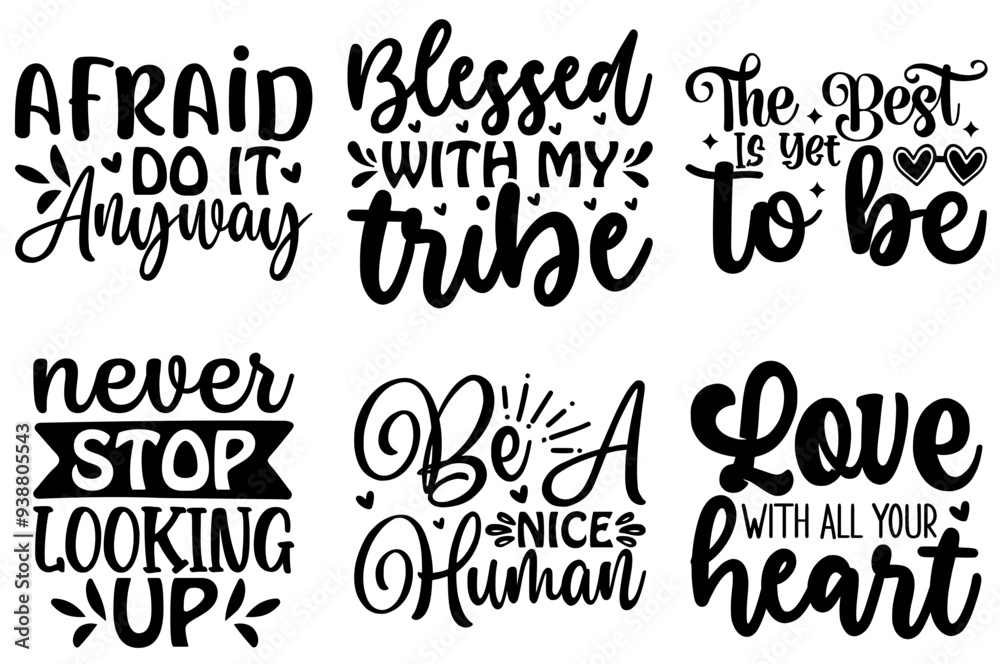 AFRAiD
DO IT
Anyway
Blessed
WITH MY
tribe
The Best
Is Yet
to be
never
STOP
LOOKING
UP
Be A
NICE
Human
Love
WITH ALL YOUR
heart
Adobe Stock | #938805543